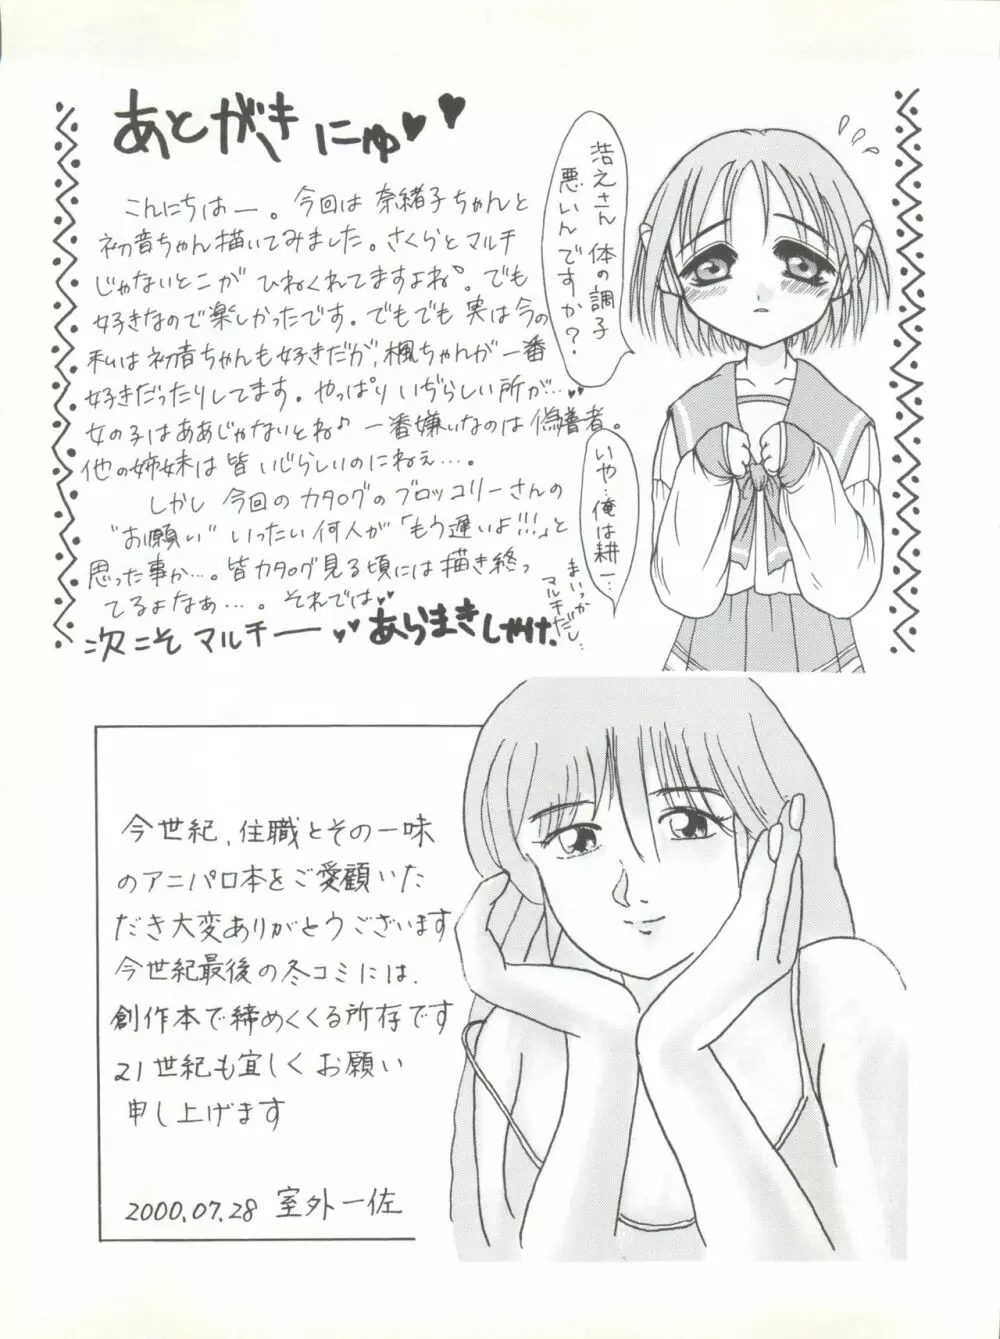 あとがきにゅ♥♥
こんにちはー。今回は奈緒子ちゃんと
初音ちゃん描いてみました。さくらとマルチ
じゃないとこがひねくれてますよね。でも
好きなので楽しかったです。でもでも実は今の
私は初音ちゃんも好きだが、楓ちゃんが一番
好きだったりしてます。やっぱりいぢらしい所が…♥♥
女の子はああじゃないとね♪一番嫌いなのは偽善者。
他の姉妹は皆いじらしいのにねぇ…。
しかし今回のカタログのブロッコリーさんの
"お願い"いったい何人が「もう遅いよ!!!」と
思った事か…。皆カタログ見る頃には描き終っ
てるよなぁ…。それでは♥♥
次こそマルチー♥♥あらまきしゃけ.
浩之さん体の調子
悪いんですか？
いや…俺は耕一…
まいっか
マルチだし…
今世紀、住職とその一味
のアニパロ本をご愛顧いた
だき大変ありがとうございます
今世紀最後の冬コミには、
創作本で締めくくる所存です
21世紀も宜しくお願い
申し上げます
2000.07.28 室外一佐